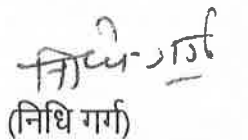 निधि गर्ग
(निधि गर्ग)